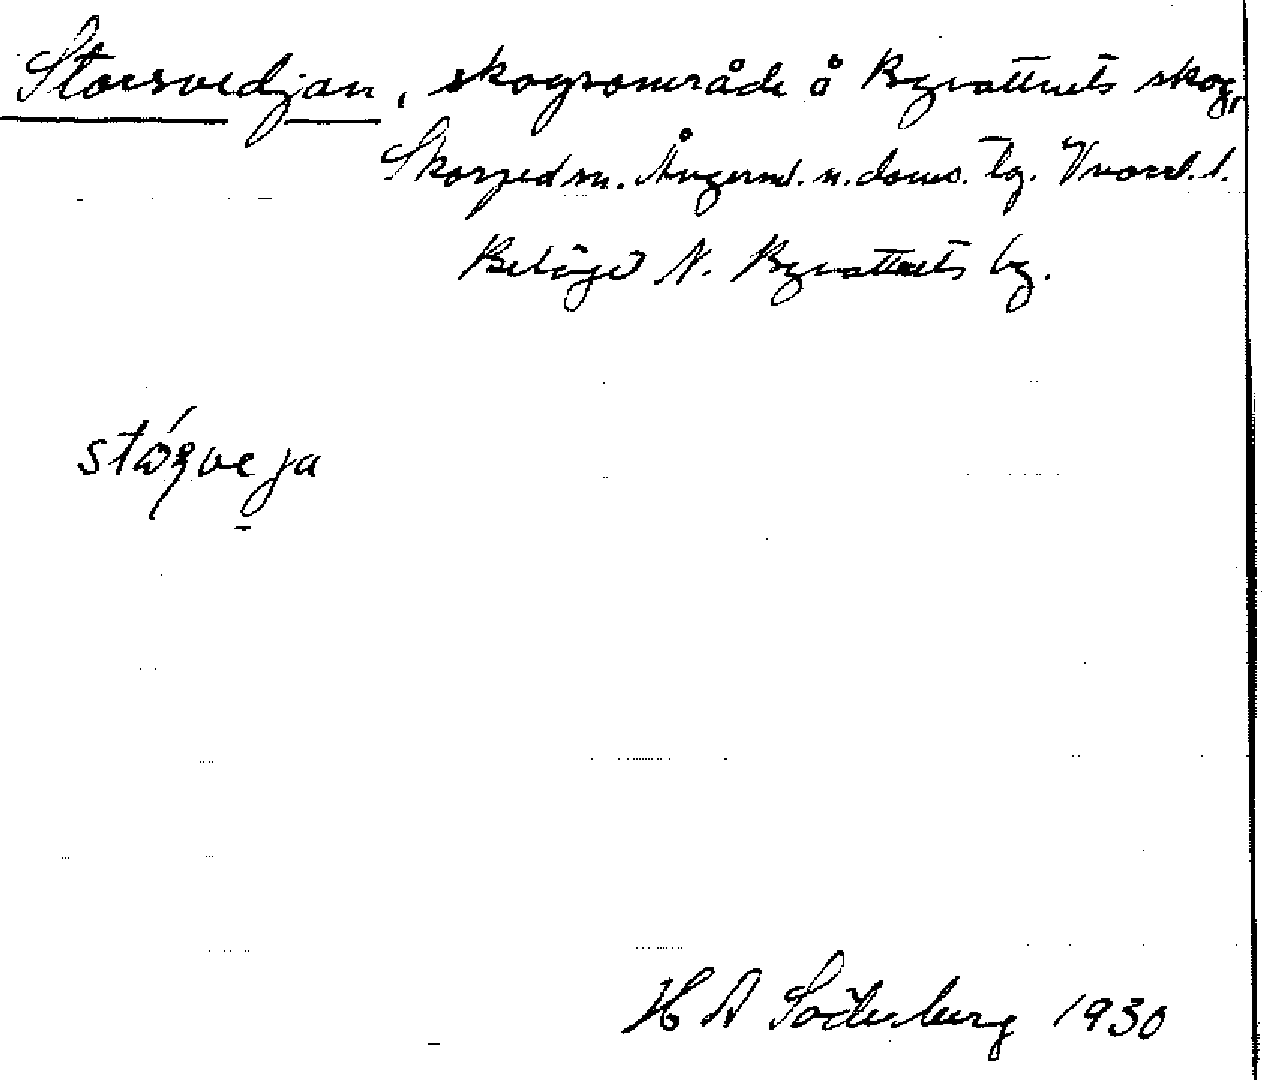 Storsvedjan, skogsområde å Byvattnets skog,
Skorped sn. Ångerml. n. doms. tg. Vnorrl. l.
Beläget N. Byvattnets by.
ståqveja
H A Söderberg 1930